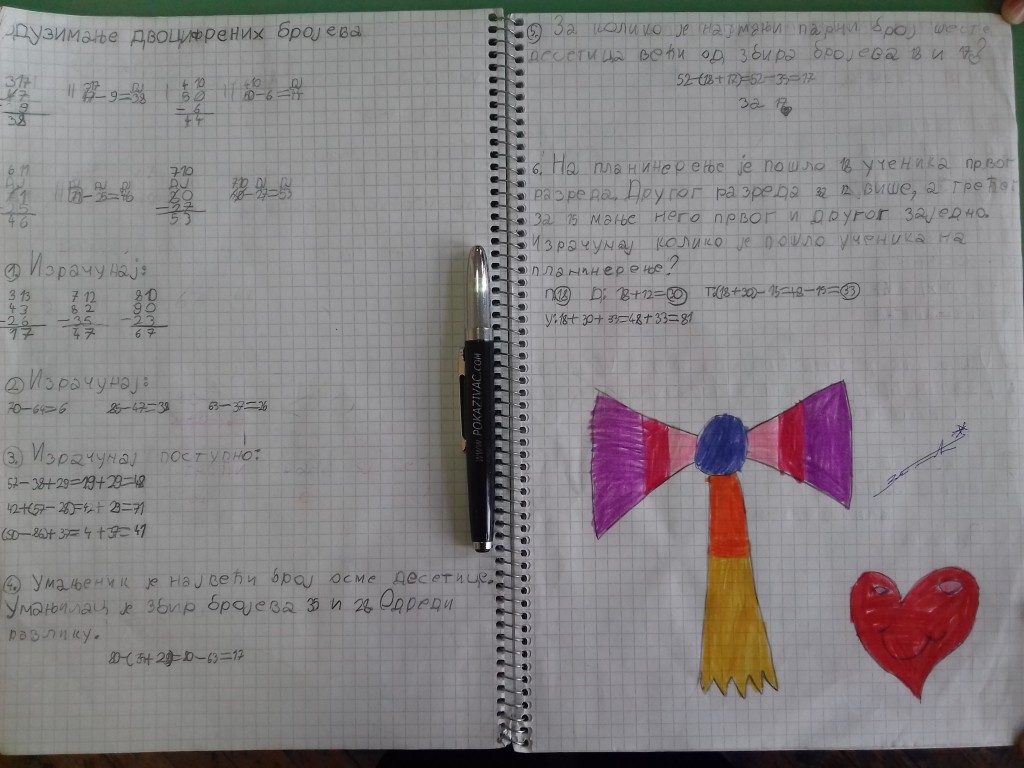 двоцифрених бројева
317
47
- 9
38
47 - 9 = 38
4 10
50
- 6
44
6 11
46
7 10
80
- 27
53
1. Израчунај:
3 13 7 12 8 10
43 82 90
- 26 - 35 - 23
17 47 67
2. Израчунај:
70-64=6 85-47=38 63-37=26
3. Израчунај поступно:
57-38+29=19+29=48
(90-86)+37=4+37=41
4. Умањеник је највећи број осме десетице.
Умањилац је збир бројева 35 и 28. Одреди
разлику.
80-(35+28)=80-63=17
5. За колико је најмањи парни број шесте
десетице већи од збира бројева 18 и 17?
52-(18+17)=52-35=17
За 17
6. На планинерење је пошло 18 ученика првог
разреда. Другог разреда за 12 више, а трећег
за 15 мање него првог и другог заједно.
Израчунај колико је пошло ученика на
планинерење?
П: 18 Д: 18+12=30 Т: (18+30)-15=48-15=33
У: 18+30+33=48+33=81
www.POKAZIVAC.com